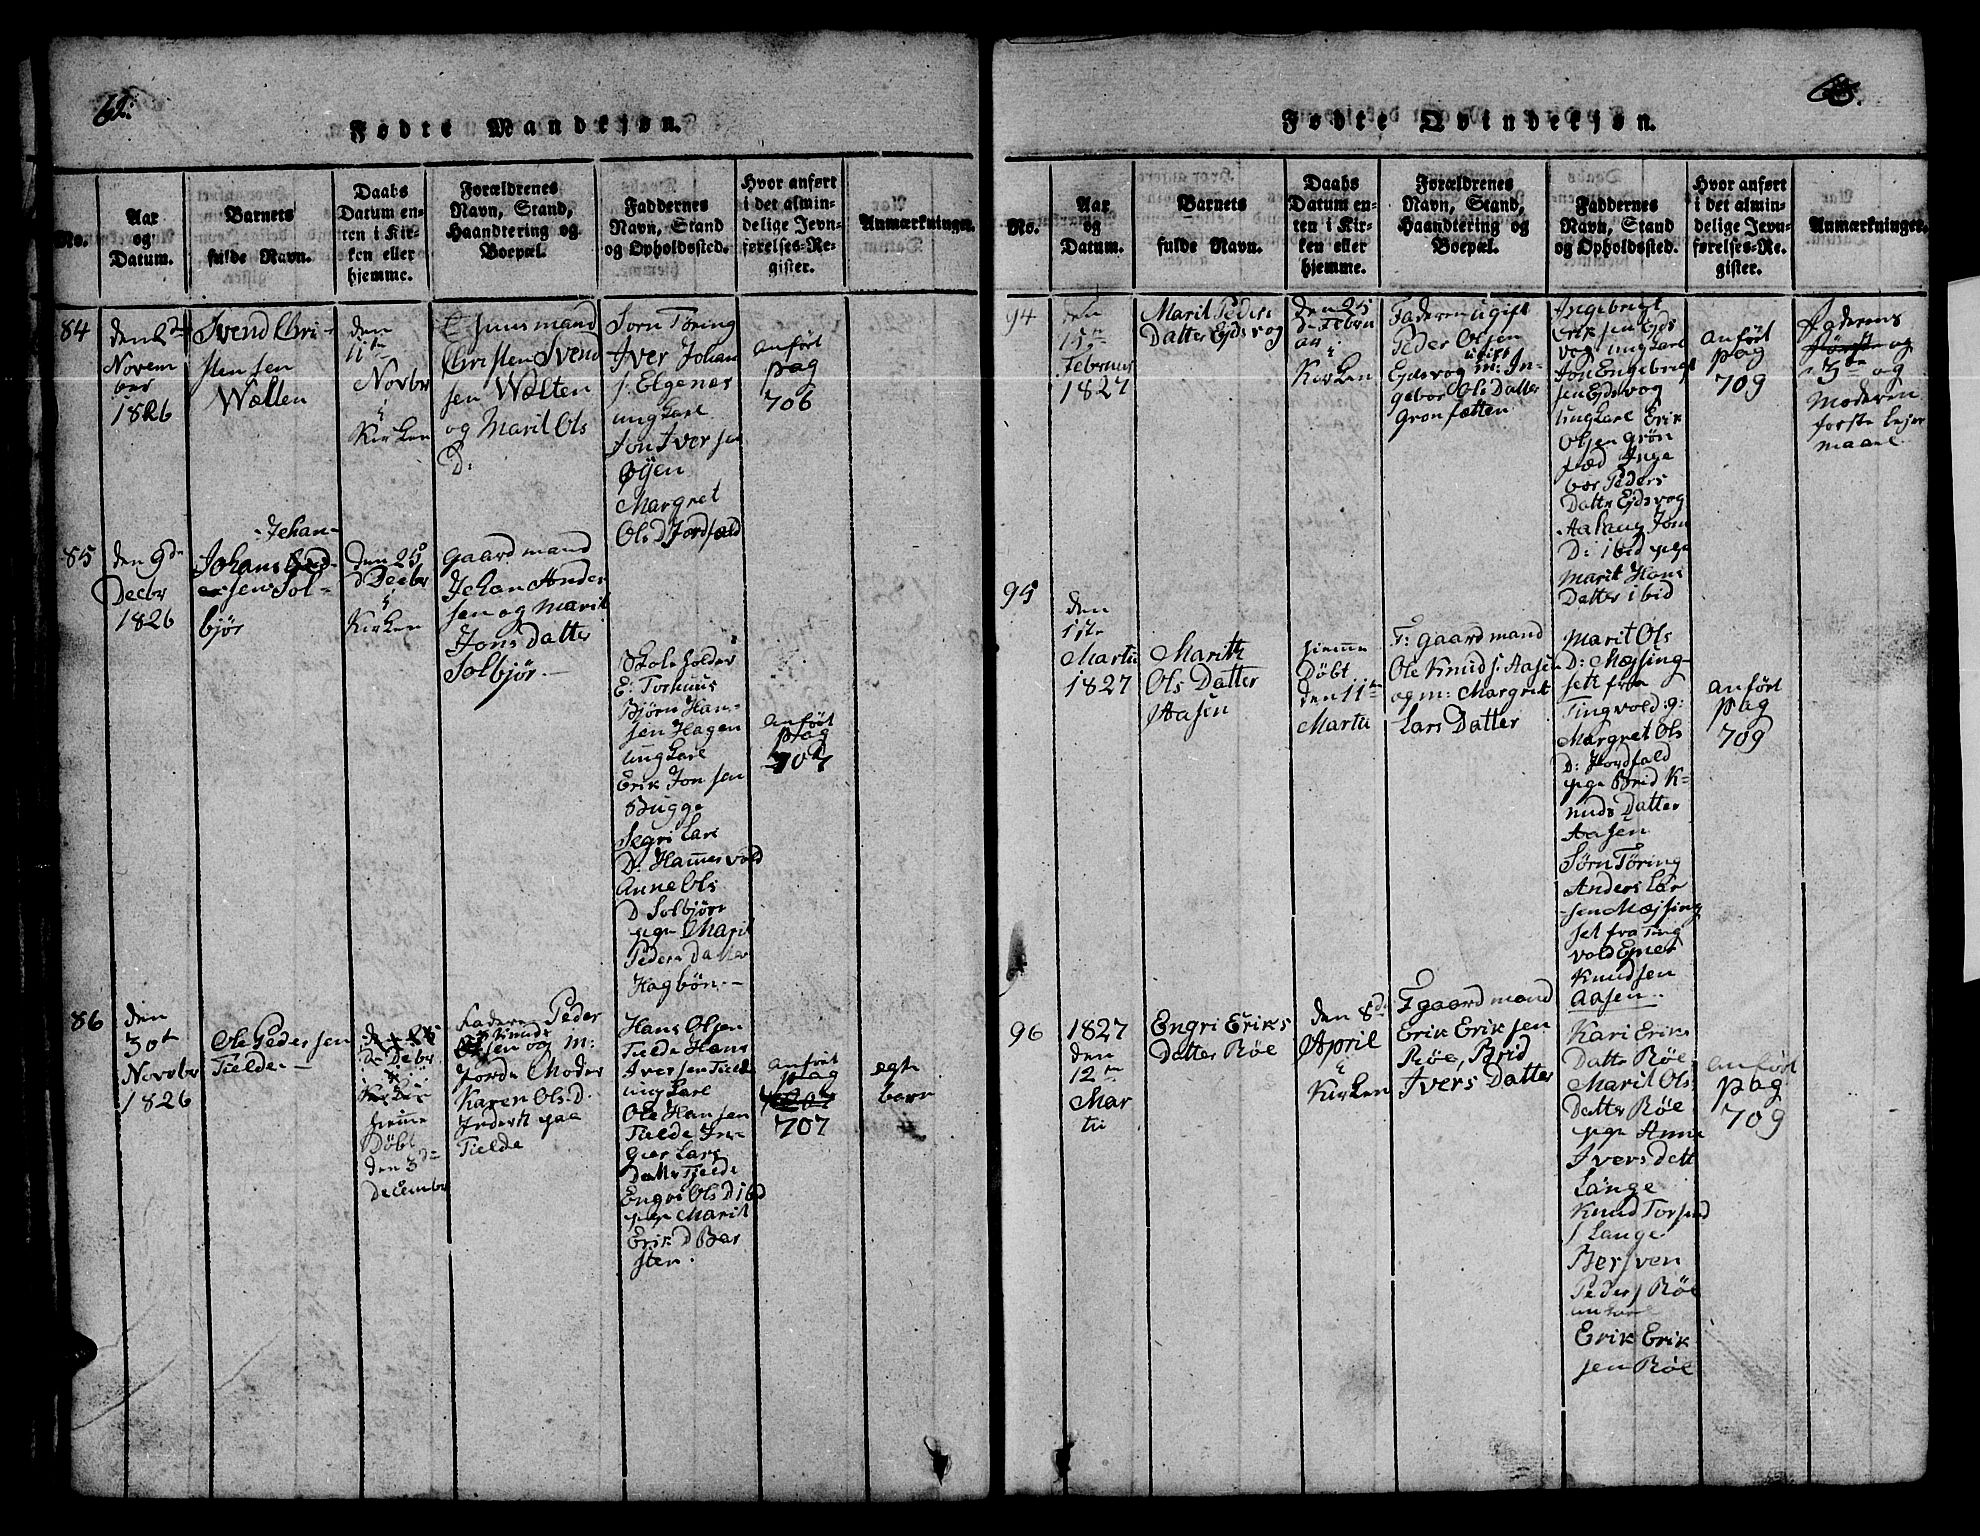 62.
Fødte Mandkjøn.
No.
Aar
og
Datum.
Barnets
fulde Navn.
Daabs
Datum en-
ten i Kir-
ken eller
hjemme.
Forældrenes
Navn, Stand,
Haandtering og
Boepæl.
Faddernes
Navn, Stand
og Opholdssted.
Hvor anført
i det almin-
delige Jevn-
førelses-Re-
gister.
Anmærkninger.
84
den 2den
Novem
ber
1826
Svend Chri-
stensen
Wælten
den
11te
Novbr
i
Kirken
Huusmand
Christen Svend
sen Wælten
og Marit Ols
D:
Sørn Tøring
Iver Johan
s. Elgenes
ungkarl
Jon Iversen
Øÿen
Margret
Ols D Jordfald
anført
pag
706
85
den 9de
Decbr
1826
-Johan-
Johans
sen Sol-
bjør
den 25
D Decbr
i
Kirken
Gaardmand
Johan Ander
sen og Marit
Jons Datter
Solbjør
Skoleholder
E: Torhuus
Bjørn Han-
sen Hagen
ungkarl
Erik Jonsen
Bugge
Segri Lars
D: Hammervold
Anne Ols
D Solbjør
pige Marit
Peders Datter
Hagbøn.-
anført
pag
707
86
den
30t
Novbr
1826
Ole Pedersen
Tielde
den 26
De Debr
i
Kirken
hjemme
Døbt
den 3de
December
Faderen Peder
Knuds
sen og M:
Jorde Moder
Karen Ols D.
Inderst paa
Tielde
Hans Olsen
Tielde Hans
Iversen Tield
ungkarl
Ole Hansen
Tielde In-
gier Lars
Datter Tielde
Engri Ols D ibd
pige Marit
Erik D Bar
sten.
anført
pag
707
egte
barn
63.
Fødte Qvindekjøn.
No.
Aar
og
Datum.
Barnets
fulde Navn.
Daabs
Datum en-
ten i Kir-
ken eller
hjemme.
Forældrenes
Navn, Stand,
Haandtering og
Boepæl.
Faddernes
Navn, Stand
og Opholdssted.
Hvor anført
i det almin-
delige Jevn-
førelses-Re-
gister.
Anmærkninger.
94
den
15de
Februar
1827
Marit Peders
Datter Ejdsvog
den 25
D: Febru
ar
i
Kirken
Faderen ugift
Peder Olsen
ugift
Ejdsvog m: In-
gebor Ols Datter
Grønfætten
Ingebrigt
Eriksen Ejds
vog ungkarl
Jon Engebrigt
sen Ejdsvog
ungkarl Erik
Olsen Grøn
fæd Inge
bor Peders
Datter Ejdsvog
Aslaug Jon
D: ibid pige
Marit Hans
Datter ibid
anført
pag
709
Faderens
første og
3de og
Moderen
første lejer
maal
95
den
1ste
Martii
1827
Marith
Ols Datter
Aasen
hjemme
Døbt
den 11te
Martii
F: gaardmand
Ole Knuds. Aasen
og m: Margrit
Lars Datter
Marit Ols
D: Mæssing-
sett fra
Tingvold: g:
Margret Ols
D: Hordfald
pige Brid K-
nuds Datter
Aasen
Sørn Tøring
Anders Lar
-sen Mæssing
set fra Ting
vold Ejner
Knudsen
Aasen..
anført
pag
709
96
1827
den
12te
Mar
tii
Engri Eriks
Datter Røe
den 8de
April
i
Kirken
F gaardmand
Erik Eriksen
Røe, Brid
Ivers Datter
Kari Eriks
Datter Røe
Marit Ols
Datter Røe
pige Anne
Ivers Datt
Lange
Knud Torsend
s Lange
Bersven
Peders Røe
ungkarl
Erik Erik
sen Røe
anført
pag
709